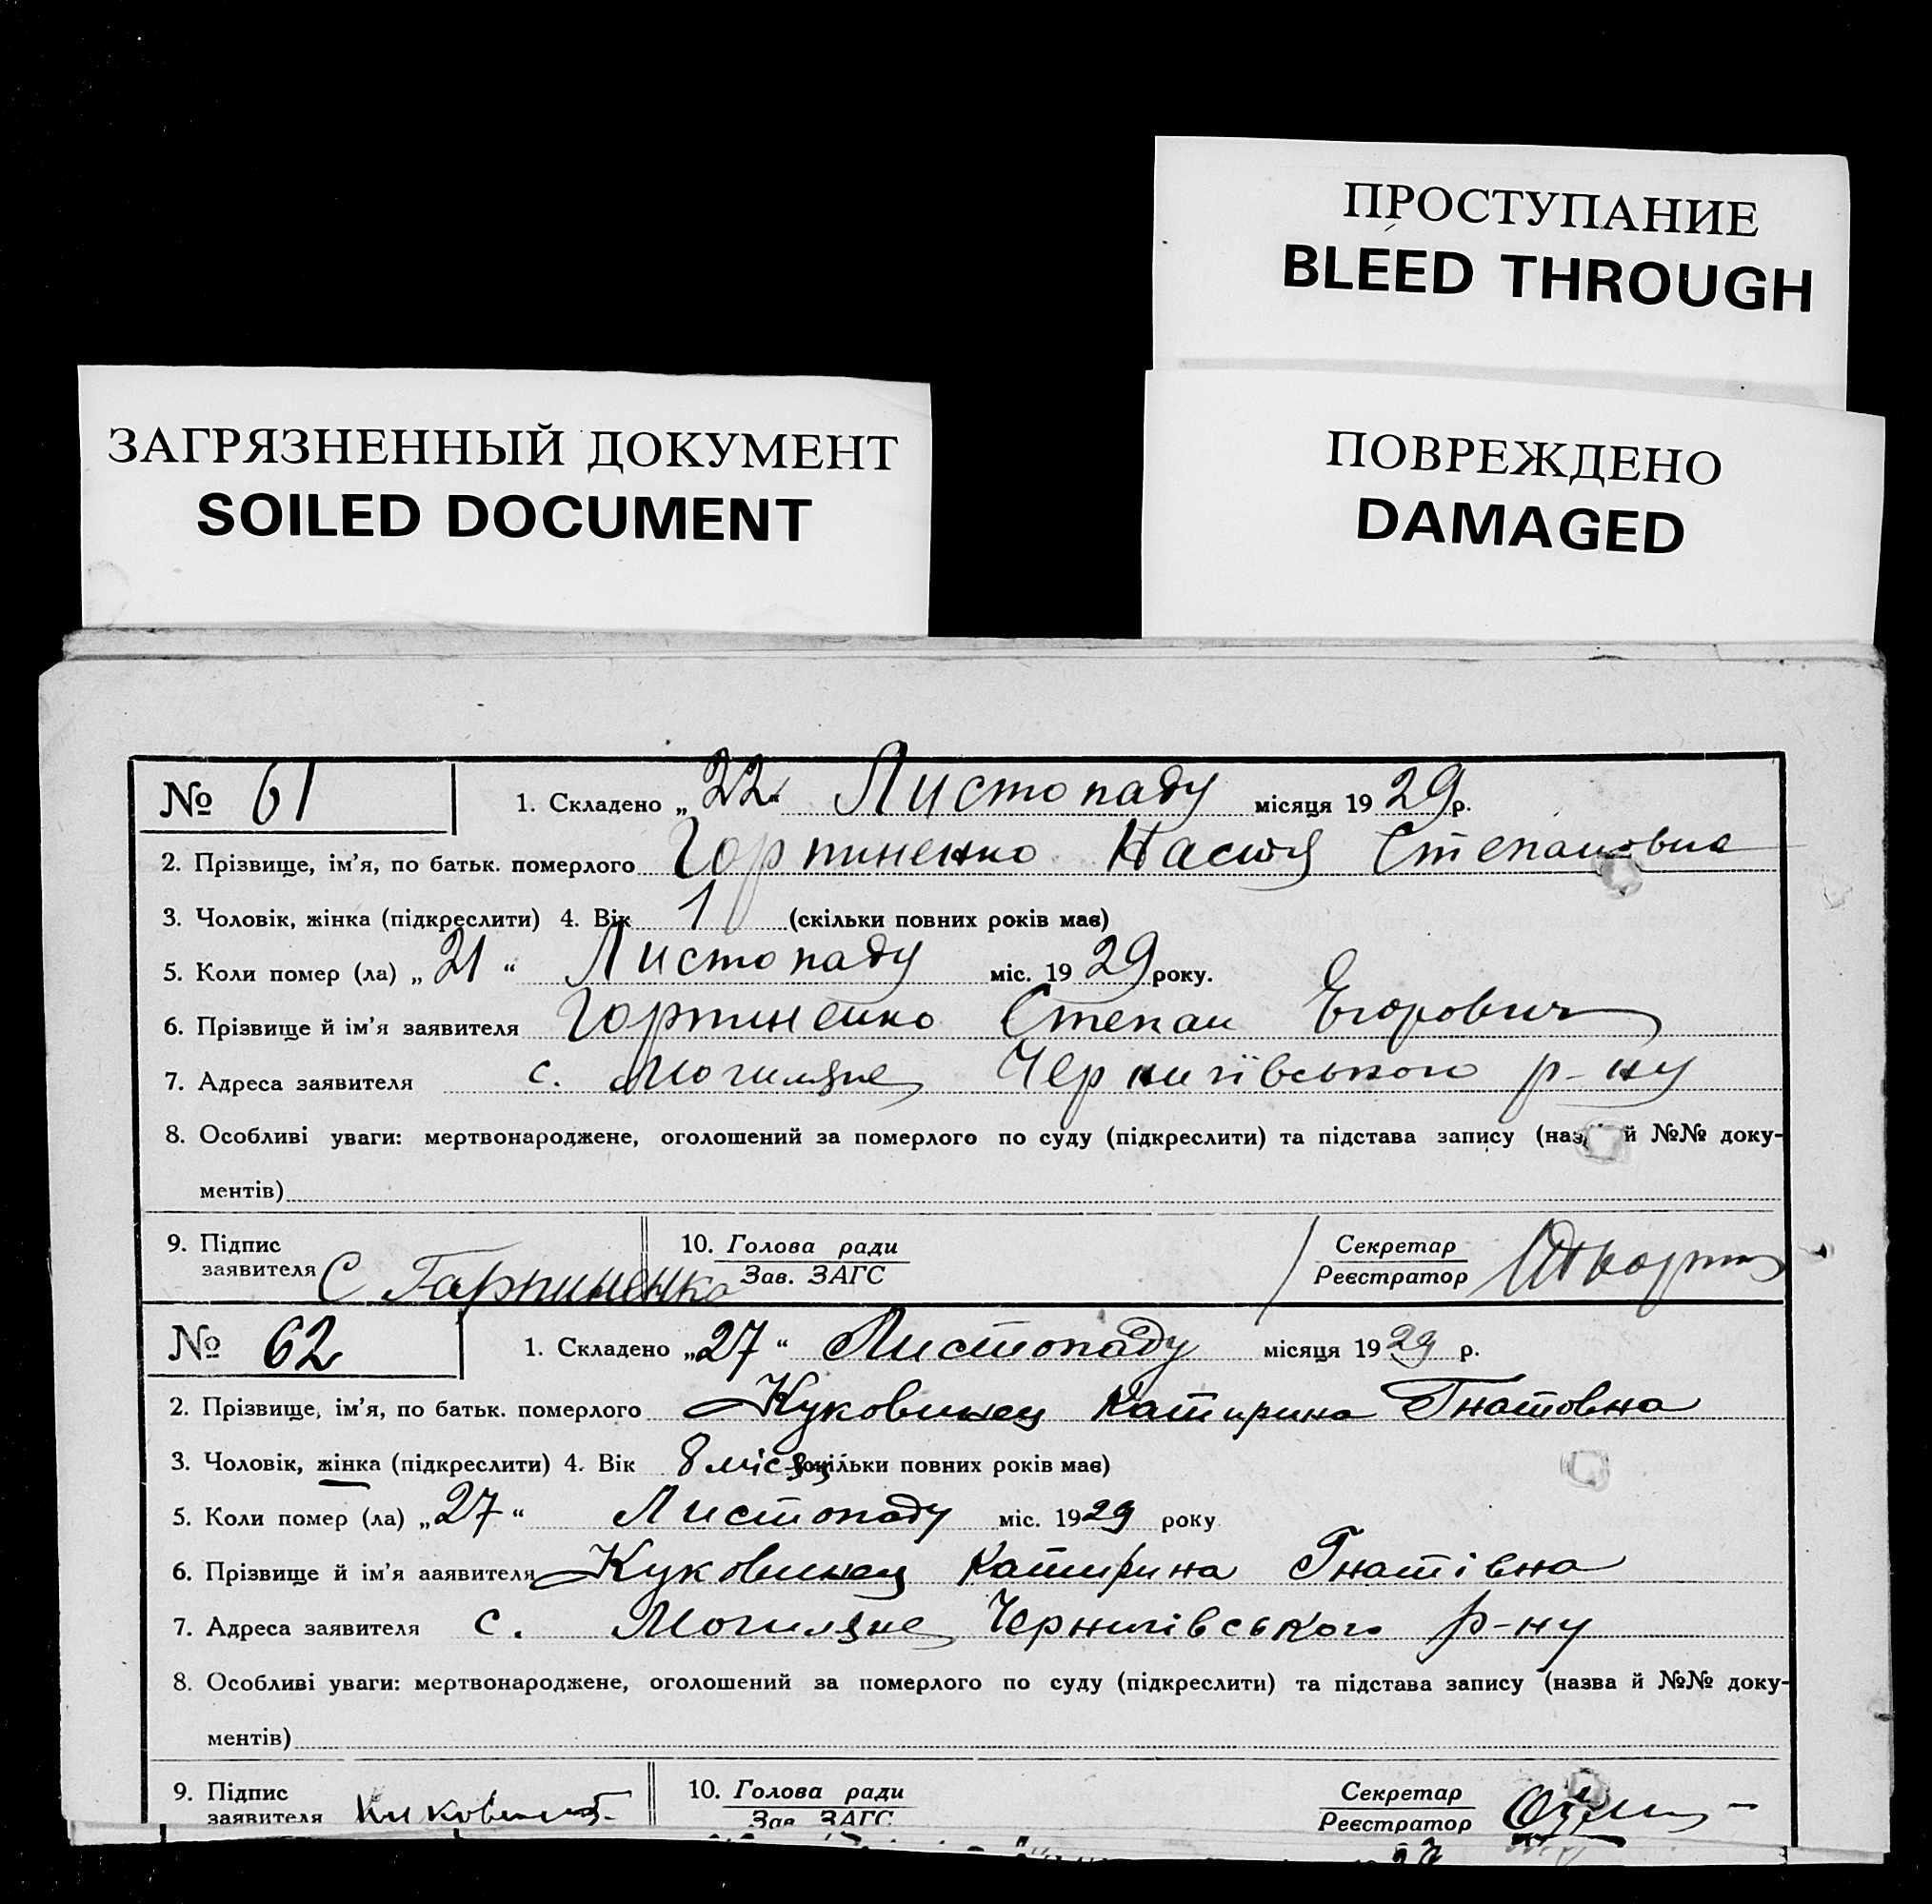 ПРОСТУПАНИЕ
BLEED THROUGH
ЗАГРЯЗНЕННЫЙ ДОКУМЕНТ
SOILED DOCUMENT
ПОВРЕЖДЕНО
DAMAGED
№ 61 1. Складено „22 Листопаду місяця 1929р.
2. Прізвище, ім’я, по батьк. померлого Горпиненко Настя Степановна
3. Чоловік, жінка (підкреслити) 4. Вік 1 (скільки повних років має)
5. Коли помер (ла) „21“ Листопаду міс. 1929 року.
6. Прізвище й ім’я заявителя Горпиненко Степан Егорович
7. Адреса заявителя с. Могиляне Чернигівського р-ну
8. Особливі уваги: мертвонароджене, оголошений за померлого по суду (підкреслити) та підстава запису (наз й №№ доку-
ментів)
9. Підпис заявителя С Гарпиненко 10. Голова ради Зав. ЗАГС Секретар Реєстратор
№ 62 1. Складено „27“ Листопаду місяця 1929 р.
2. Прізвище, ім’я, по батьк. померлого Куковинец Катирина Гнатовна
3. Чоловік, жінка (підкреслити) 4. Вік 8 місяц скільки повних років має)
5. Коли помер (ла) „27“ Листопаду міс. 1929 року
6. Прізвище й ім’я ааявителя Куковинец Катирина Гнатівна
7. Адреса заявителя с. Могиляне Чернигівського р-ну
8. Особливі уваги: мертвонароджене, оголошений за померлого по суду (підкреслити) та підстава запису (назва й №№ доку-
ментів)
9. Підпис заявителя 10. Голова ради Зав. ЗАГС Секретар Реєстратор